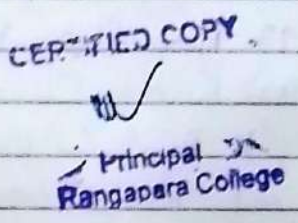 CERTIFIED COPY
Principal
Rangapara College